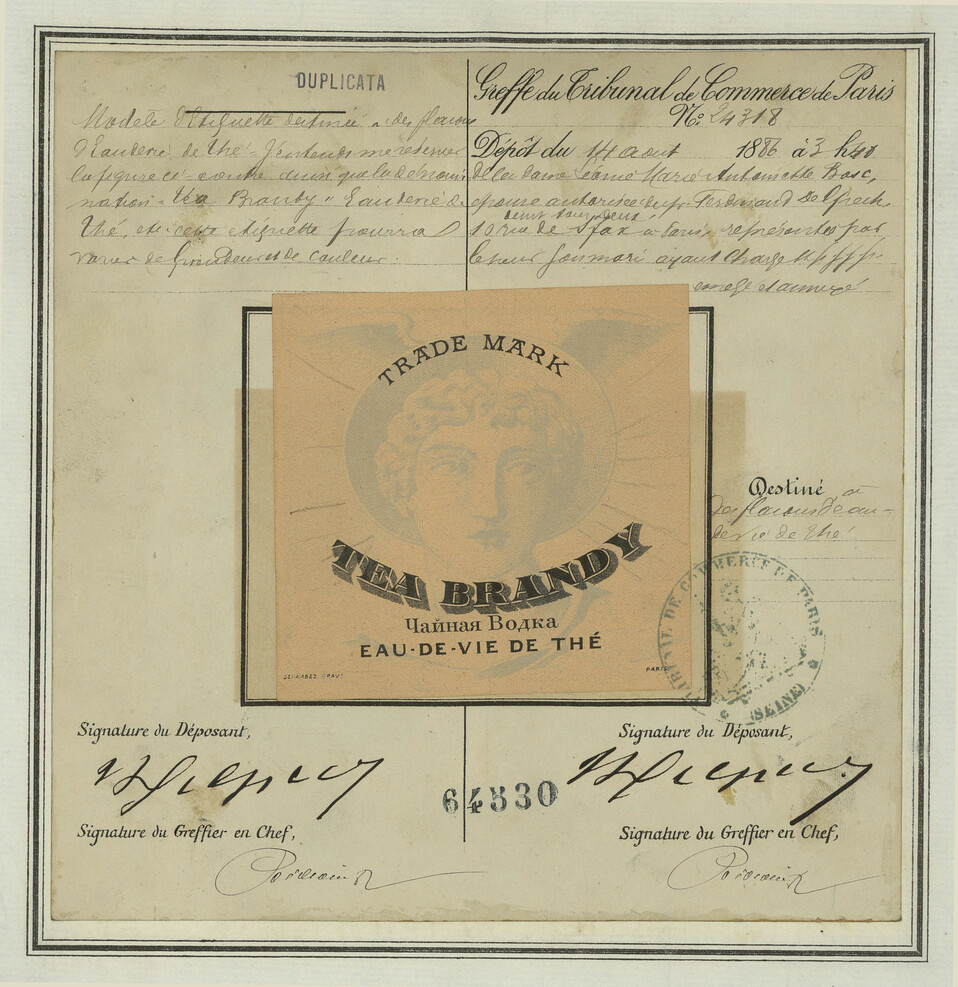 DUPLICATA
Modèle d'Etiquette destinée à des flacons
d'Eau de vie de thé. J'entends me réserver
la figure ci-contre ainsi que la dénomi-
nation "Tea Brandy" Eau de vie de
Thé, et cette étiquette pourra
varier de Grandeur et de Couleur.
Greffe du Tribunal de Commerce de Paris
No: 24318
Dépôt du 14 aout 1886 à 3 h 40
de la dame Marie Antoinette Bosc,
épouse autorisée du sr. Ferdinand de
10 rue de Sfax à Paris, représentée par
le sieur son mari ayant charge
Destiné à
des flacons d'eau-
de vie de thé
TRADE MARK
TEA BRANDY
Чайная Водка
EAU-DE-VIE DE THÉ
PARIS
TRIBUNAL DE COMMERCE DE PARIS
(SEINE)
Signature du Déposant,
Signature du Déposant,
64530
Signature du Greffier en Chef,
Signature du Greffier en Chef,